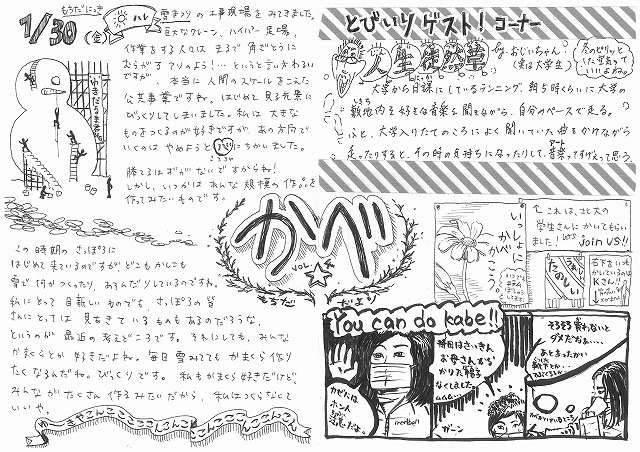 もちだにっき
1/30 (金) ハレ
雪まつりの工事現場をみてきました。
巨大なクレーン、ハイパー足場。
作業をする人々は まるで 角ざとうに
むらがす アリのよう!… というと言いすぎかもい
ですが、本当に 人間のスケールをこえた
公共事業ですね。はじめて見る光景に
びっくりしてしまいました。私は 大きな
ものをつくるのが好きですが、あの方向で
いくのは やめようと 心 にちかいました。
勝てるはずがないですからね!
しかし、いつかは あんな 規模の 作品を
作ってみたいものです。
ゆきだるま
とびいりゲスト!コーナー
人生徒然草
by. おじいちゃん
(実は大学生)
冬のピリッと
した空気って
いいよね。
大学から日課にしているランニング。朝5時くらいに大学の
敷地内を好きな音楽を聞きながら、自分のペースで走る。
ふと、大学入りたてのころによく聞いていた曲をかけながら
走ったりすると、その時の気持ちになったりして、音楽ってすげえって思う。
かべ
vol.
もちだ だより
いっしょに
かべかこう。
これは、北大の
学生さんに かいてもらい
ました! Let's
join us!!
たのしい
右下をいつも
かいているのは
Kさん!!
この時期の さっぽろに
はじめて来ているのですが、どこもかしこも
雪で何かつくったり、あそんだりしているのですね。
私にとって 目新しいものでも、さっぽろの皆
さんにとっては 見あきているものもあるのだろうな、
というのが 最近の考えどころです。それにしても、みんな
かまくらとか 好きだよね。毎日 雪みてても かまくら作り
たくなるんだね。びっくりです。 私もかまくら好きだけど、
みんながたくさん 作るみたいだから、私はつくらなくて
いいや。
You can do kabe!!
かぜには
ホント
注意だよ。
持田はさいきん
お母さんから
かりた帽子
なくしました。
ムムム…
ガーン
そろそろ買わないと
ダメだなぁ…
あとあったかい
靴下とか…